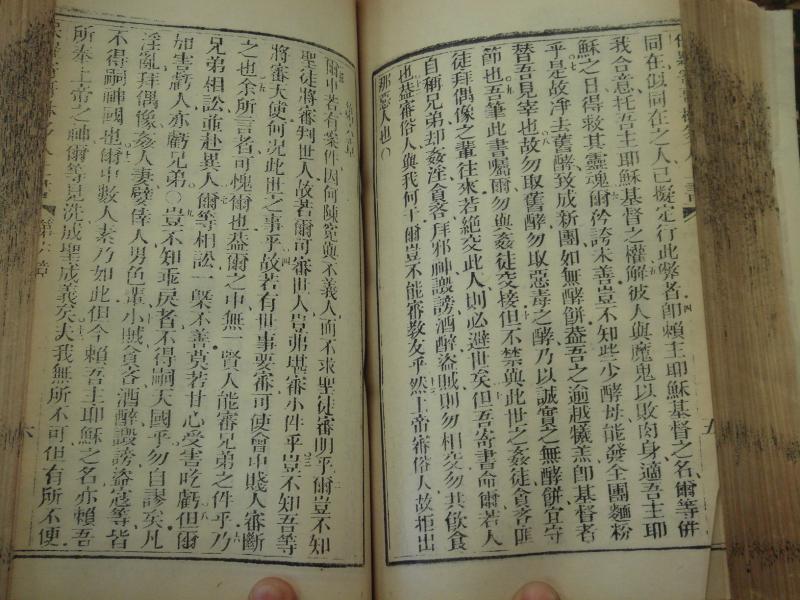 同在似同在之人已擬定行此弊者四卽賴主耶穌基督之名爾等倂
我合意托吾主耶穌基督之權解彼人與魔鬼以敗肉身適吾主耶
穌之日得救其靈魂爾矜誇未善豈不知些少酵母能發全團麵粉
乎是故凈去舊酵致成新團如無酵餅葢吾之逾越犧羔卽基督者
替吾見宰也故勿取舊酵勿取惡毒之酵乃以誠實之無酵餅宜守
節也吾筆此書囑爾勿與姦徒交接但不禁與此世之姦徒貪吝匪
徒拜偶像之輩往來若絶交此人則必避世矣但吾寄書命爾若人
自稱兄弟却姦淫貪吝拜邪神譭謗酒醉盜賊則勿相交勿共飲食
也葢審俗人與我何干爾豈不能審教友乎然上帝審俗人故拒出
那惡人也
第六章
爾中若有案件因何陳寃與不義人而不求聖徒審明乎爾豈不知
聖徒將審判世人故若爾可審世人豈弗堪審小件乎豈不知吾等
將審天使何況此世之事乎故若有世事要審可使會中賤人審斷
之也余所言者可愧爾也葢爾之中無一賢人能審兄弟之件乎乃
兄弟相訟並赴異人爾等相訟一槩不善莫若甘心受害吃虧但爾
加害虧人亦虧兄弟豈不知乖戾者不得嗣天國乎勿自謬矣凡
淫亂拜偶像姦人妻嬖倖人男色輩小賊貪吝酒醉譭謗盜寇等皆
不得嗣神國也爾中數人素乃如此但今賴吾主耶穌之名亦賴吾
所奉上帝之神爾等見洗成聖成義矣夫我無所不可但有所不便
第六章
六
五